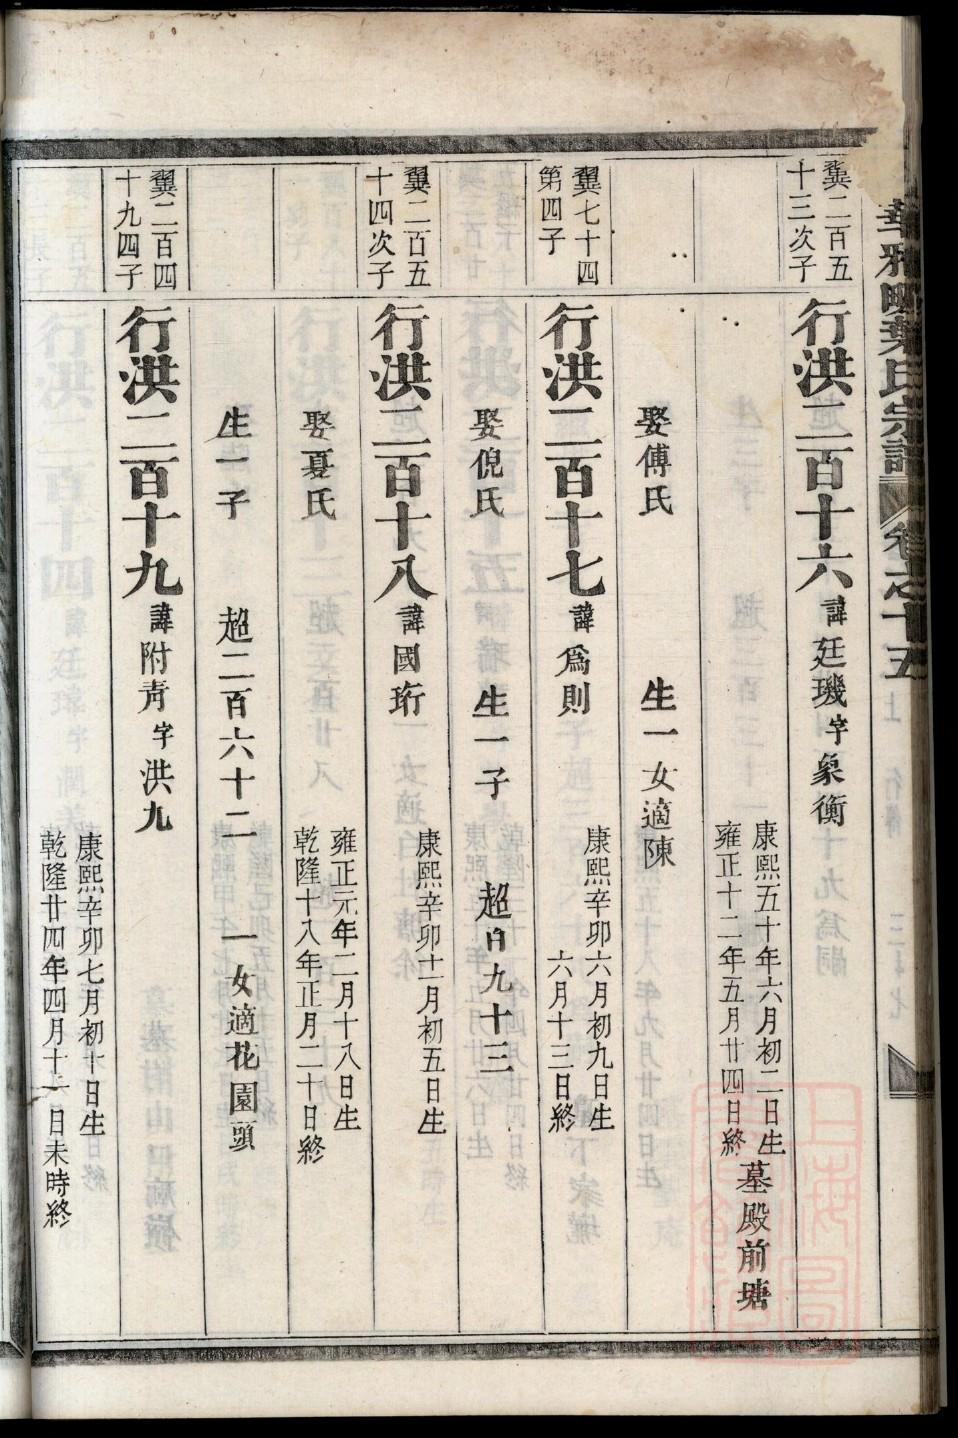 華 葉氏宗譜 卷之十五
龔二百五
十三次子
行洪二百十六 諱廷璣 字象衡
康熙五十年六月初二日生
雍正十二年五月廿四日終
墓殿前塘
娶傅氏 生一女適陳
龔七十四
第四子
行洪二百十七 諱爲則
康熙辛卯六月初九日生
六月十三日終
娶倪氏 生一子 超 九十三
龔二百五
十四次子
行洪二百十八 諱國珩
康熙辛卯十一月初五日生
雍正元年二月十八日生
乾隆十八年正月二十日終
娶夏氏
生一子 超二百六十二 一女適花園頭
龔二百四
十九四子
行洪二百十九 諱附靑 字洪九
康熙辛卯七月初十日生
乾隆廿四年四月十一日未時終